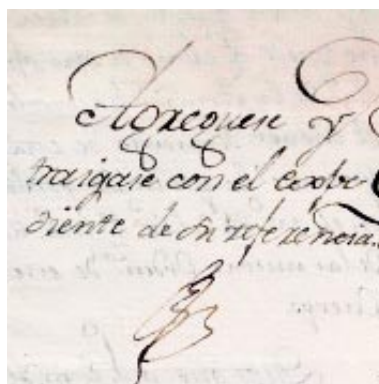 Agreguese y
traigase con el expe
diente de su referencia.